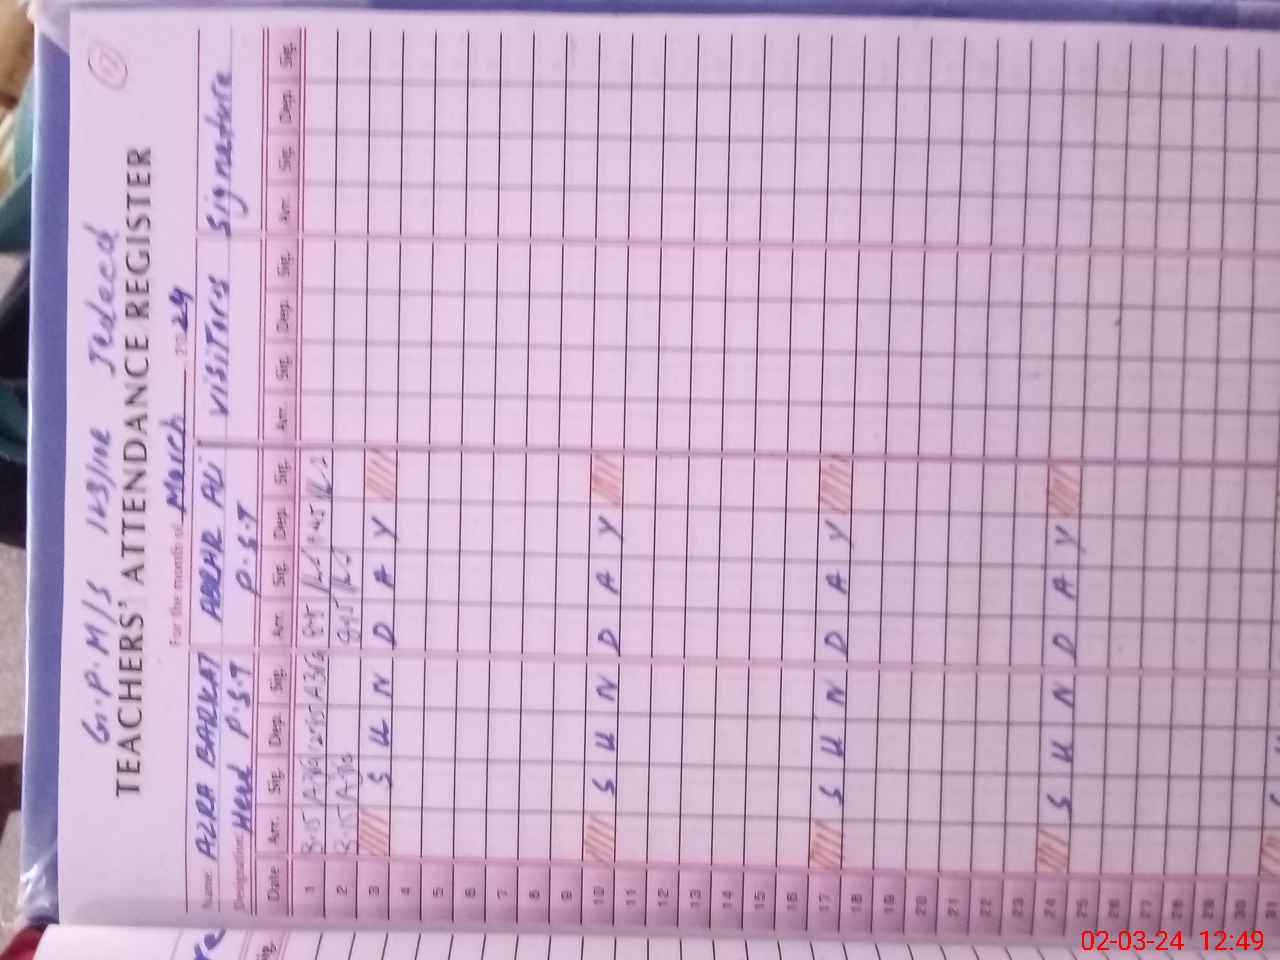 12
G.P.M/S 123/NR Jadeed
TEACHERS' ATTENDANCE REGISTER
For the month of March 2024
Name: AZRA BARKAT ABRAR ALi VISITORS Signature
Designation Head P.S.T P.S.T
Date Arr. Sig. Dep. Sig. Arr. Sig. Dep. Sig. Arr. Sig. Dep. Sig. Arr. Sig. Dep. Sig.
1 8-15
2 8-15 845
3 SUNDAY
4
5
6
7
8
9
10 SUNDAY
11
12
13
14
15
16
17 SUNDAY
18
19
20
21
22
23
24 SUNDAY
25
26
27
28
29
30
31 S
Sig.
02-03-24 12:49